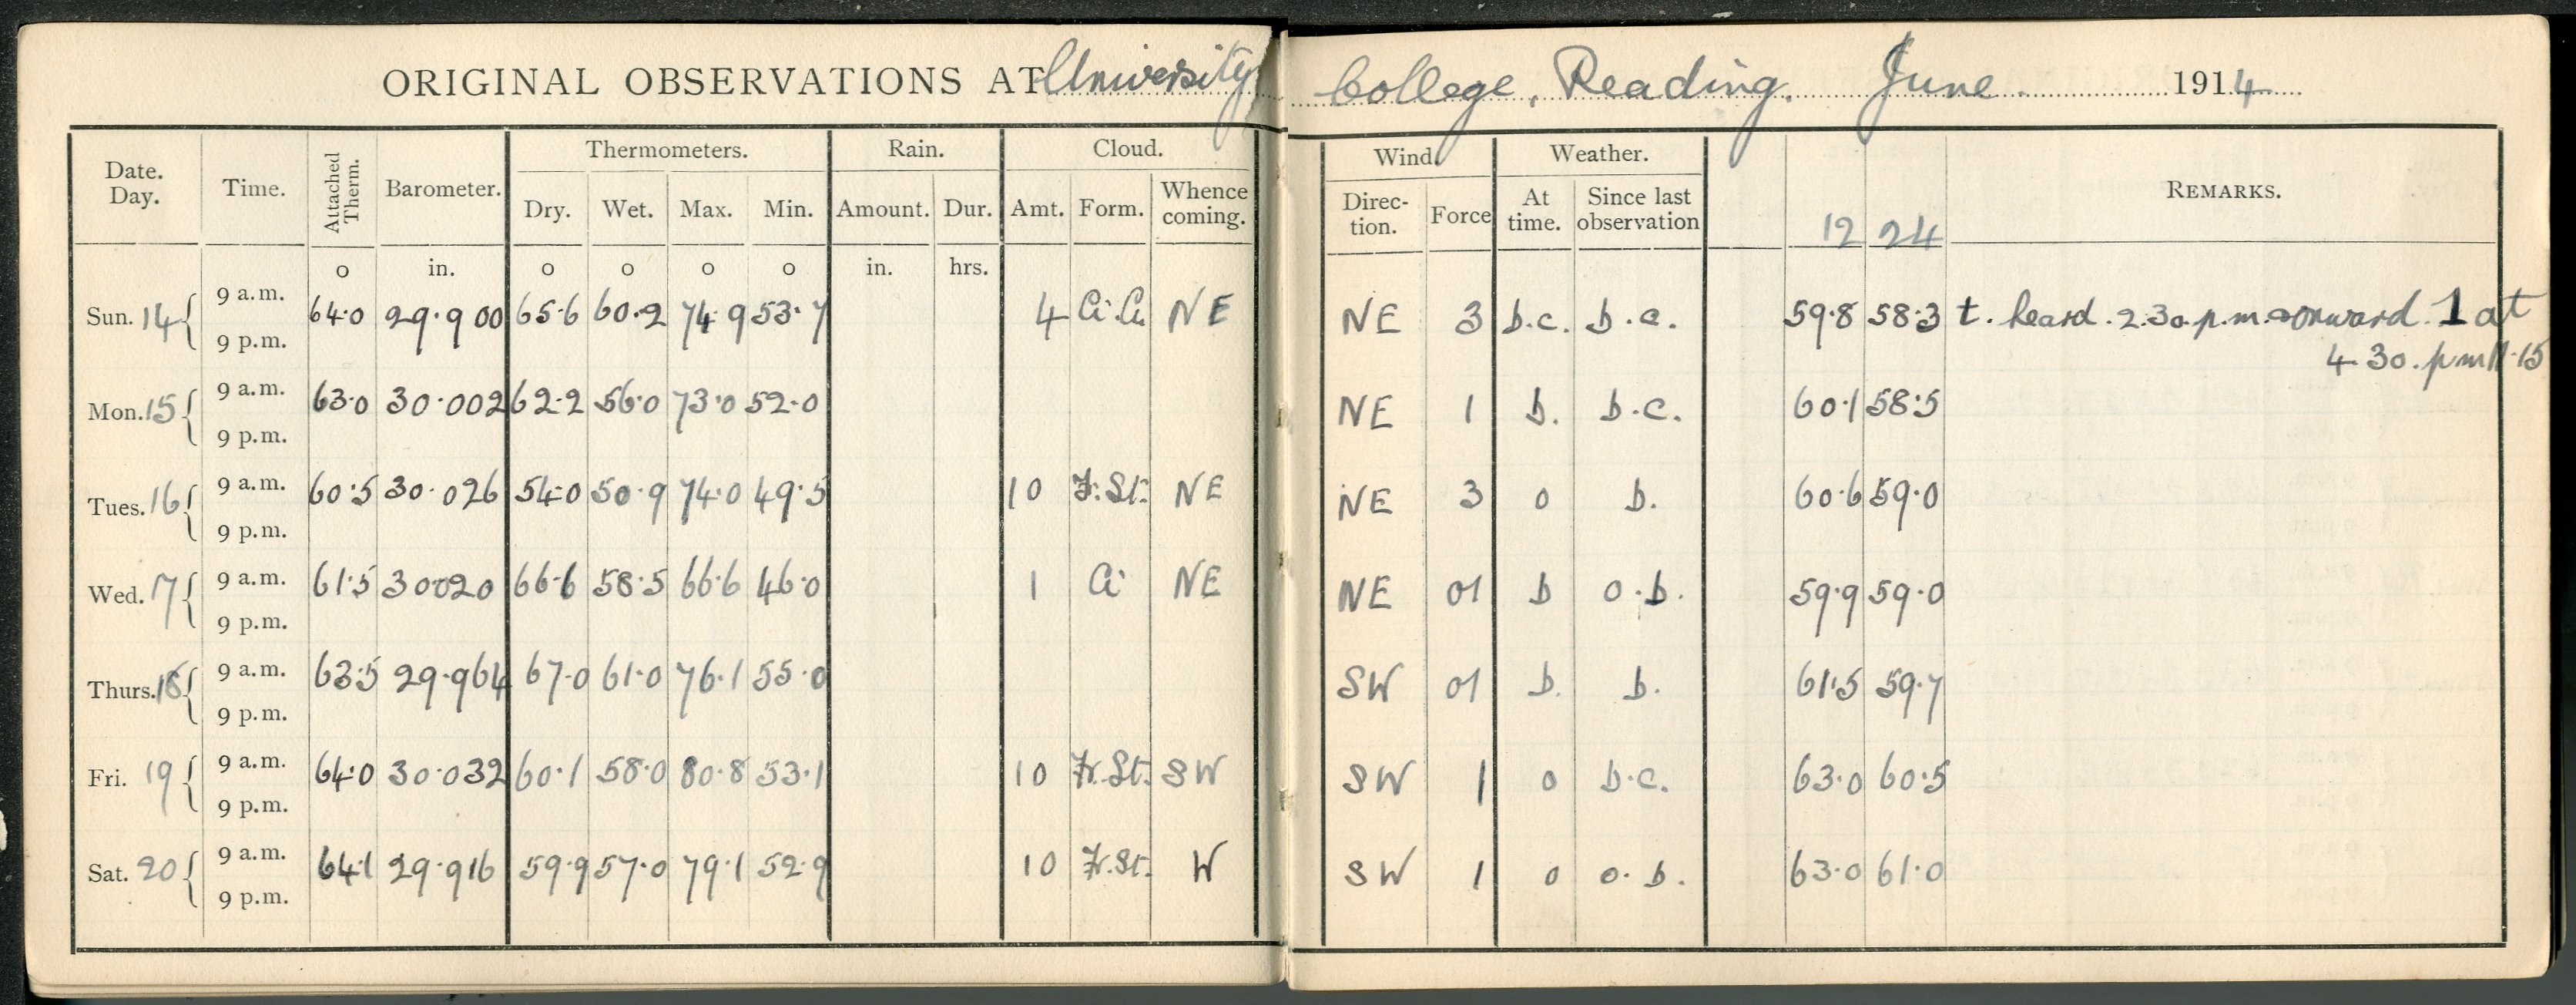 ORIGINAL OBSERVATIONS AT University College, Reading. June 1914
Date. Day. Time. Attached Therm. Barometer. Thermometers. Rain. Cloud. Wind. Weather. REMARKS.
Dry. Wet. Max. Min. Amount. Dur. Amt. Form. Whence coming. Direc- tion. Force At time. Since last observation 12 24
o in. o o o o in. hrs.
Sun. 14 9 a.m. 64.0 29.900 65.6 60.2 74.9 53.7 4 Ci.Cu NE NE 3 b.c. b.c. 59.8 58.3 t. heard. 2.30.p.m. onward. 1 at
9 p.m. 4 30. p.m 11.15
Mon. 15 9 a.m. 63.0 30.002 62.2 56.0 73.0 52.0 NE 1 b. b.c. 60.1 58.5
9 p.m.
Tues. 16 9 a.m. 60.5 30.026 54.0 50.9 74.0 49.5 10 F.St. NE NE 3 o b. 60.6 59.0
9 p.m.
Wed. 17 9 a.m. 61.5 30020 66.6 58.5 66.6 46.0 1 Ci NE NE 01 b o.b. 59.9 59.0
9 p.m.
Thurs. 18 9 a.m. 63.5 29.964 67.0 61.0 76.1 55.0 SW 01 b. b. 61.5 59.7
9 p.m.
Fri. 19 9 a.m. 64.0 30.032 60.1 58.0 80.8 53.1 10 Fr.St. SW SW 1 o b.c. 63.0 60.5
9 p.m.
Sat. 20 9 a.m. 64.1 29.916 59.9 57.0 79.1 52.9 10 Fr.St. W SW 1 o o.b. 63.0 61.0
9 p.m.